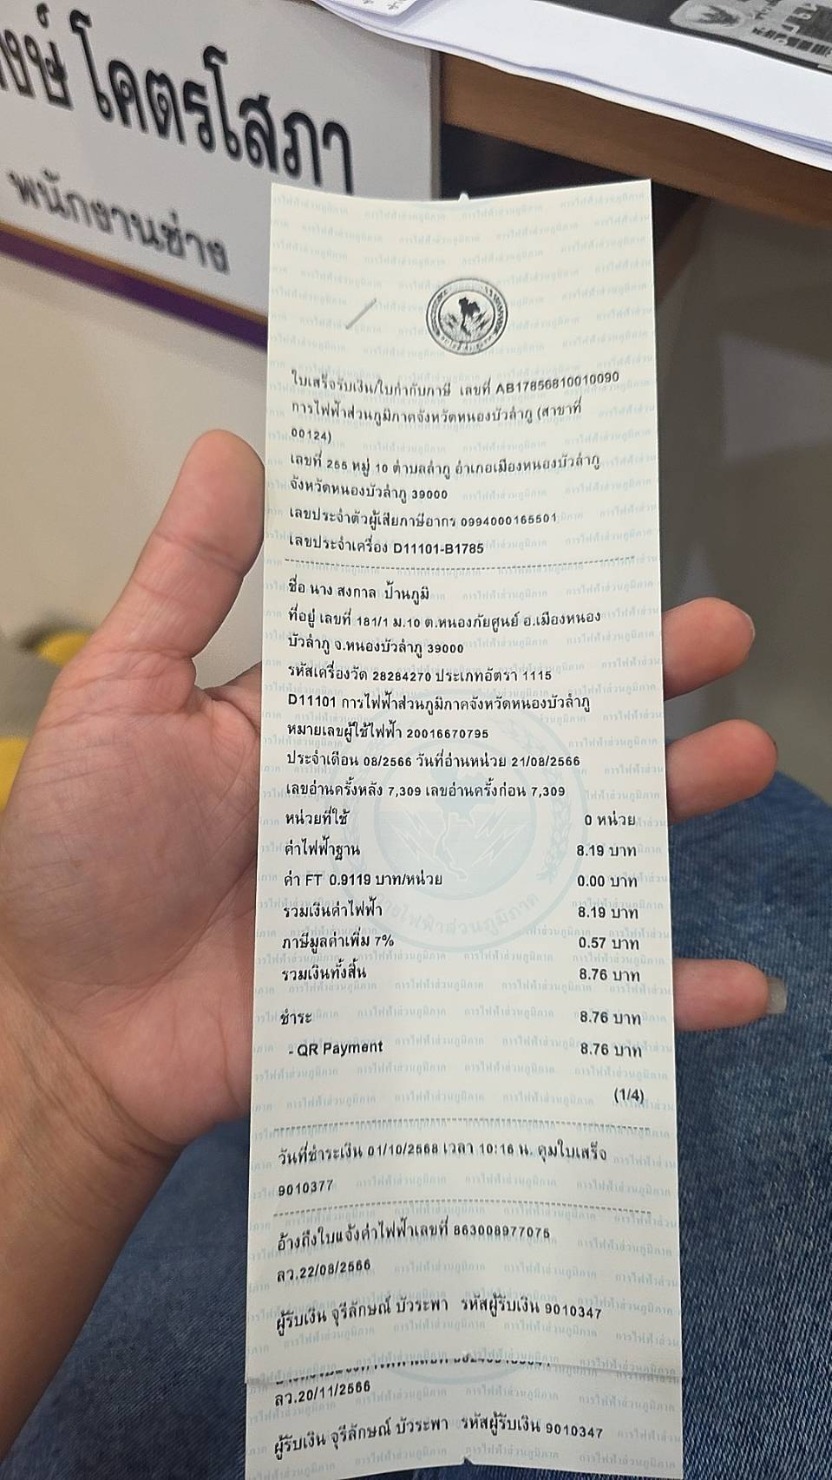 โคตรโสภา
พนักงานช่าง
ใบเสร็จรับเงิน/ใบกำกับภาษี เลขที่ AB17856810010090
การไฟฟ้าส่วนภูมิภาคจังหวัดหนองบัวลำภู (สาขาที่
00124)
เลขที่ 255 หมู่ 10 ตำบลลำภู อำเภอเมืองหนองบัวลำภู
จังหวัดหนองบัวลำภู 39000
เลขประจำตัวผู้เสียภาษีอากร 0994000165501
เลขประจำเครื่อง D11101-B1785
ชื่อ นาง สงกาล ป้านภูมิ
ที่อยู่ เลขที่ 181/1 ม.10 ต.หนองภัยศูนย์ อ.เมืองหนอง
บัวลำภู จ.หนองบัวลำภู 39000
รหัสเครื่องวัด 28284270 ประเภทอัตรา 1115
D11101 การไฟฟ้าส่วนภูมิภาคจังหวัดหนองบัวลำภู
หมายเลขผู้ใช้ไฟฟ้า 20016670795
ประจำเดือน 08/2566 วันที่อ่านหน่วย 21/08/2566
เลขอ่านครั้งหลัง 7,309 เลขอ่านครั้งก่อน 7,309
หน่วยที่ใช้ 0 หน่วย
ค่าไฟฟ้าฐาน 8.19 บาท
ค่า FT 0.9119 บาท/หน่วย 0.00 บาท
รวมเงินค่าไฟฟ้า 8.19 บาท
ภาษีมูลค่าเพิ่ม 7% 0.57 บาท
รวมเงินทั้งสิ้น 8.76 บาท
ชำระ 8.76 บาท
- QR Payment 8.76 บาท
(1/4)
วันที่ชำระเงิน 01/10/2568 เวลา 10:16 น. คุมใบเสร็จ
9010377
อ้างถึงใบแจ้งค่าไฟฟ้าเลขที่ 863008977075
ลว.22/08/2566
ผู้รับเงิน จุรีลักษณ์ บัวระพา รหัสผู้รับเงิน 9010347
ลว.20/11/2566
ผู้รับเงิน จุรีลักษณ์ บัวระพา รหัสผู้รับเงิน 9010347